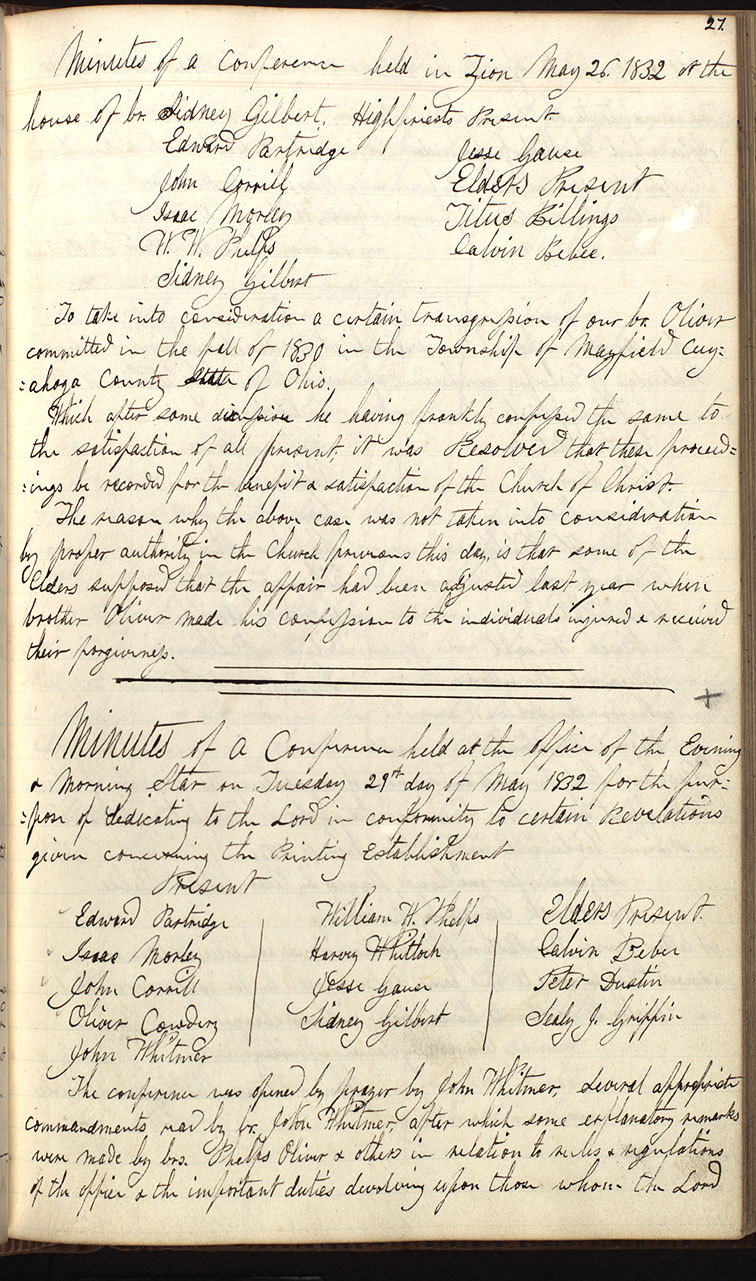 27.
Minutes of a Conference held in Zion May 26. 1832 at the
house of br. Sidney Gilbert. Highpriests Present.
Edward Partridge
Jesse Gause
John Corrill
Elders Present
Isaac Morley
Titus Billings
W. W. Phelps
Calvin Bebee.
Sidney Gilbert
To take into consideration a certain transgression of our br. Oliver
committed in the fall of 1830 in the Township of Mayfield Cuy=
=ahoga County State of Ohio.
Which after some discussion he having frankly confessed the same to
the satisfaction of all present, it was Resolved that these proceed=
=ings be recorded for the benefit & satisfaction of the Church of Christ.
The reason why the above case was not taken into consideration
by proper authority in the Church previous this day, is that some of the
Elders supposed that the affair had been adjusted last year when
brother Oliver made his confession to the individuals injured & received
their forgiveness.
+
Minutes of a Conference held at the office of the Evening
& Morning Star on Tuesday 29th day of May 1832 for the pur=
=pose of dedicating to the Lord in conformity to certain Revelations
given concerning the Printing Establishment
Present
Edward Partridge
William W. Phelps
Elders Present.
Isaac Morley
Harvey Whitlock
Calvin Bebee
John Corrill
Jesse Gause
Peter Dustin
Oliver Cowdery
Sidney Gilbert
Sealy J. Griffin
John Whitmer
The conference was opened by prayer by John Whitmer, Several appropriate
commandments read by br. John Whitmer, after which some explanatory remarks
were made by brs. Phelps Oliver & others in relation to rules & regulations
of the office & the important duties devolving upon those whom the Lord